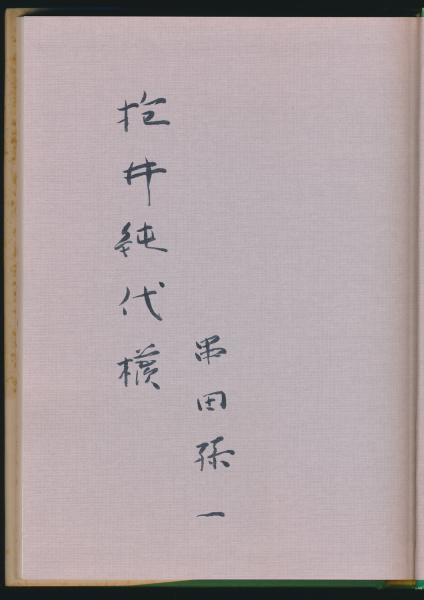 抱井純代様
串田孫一